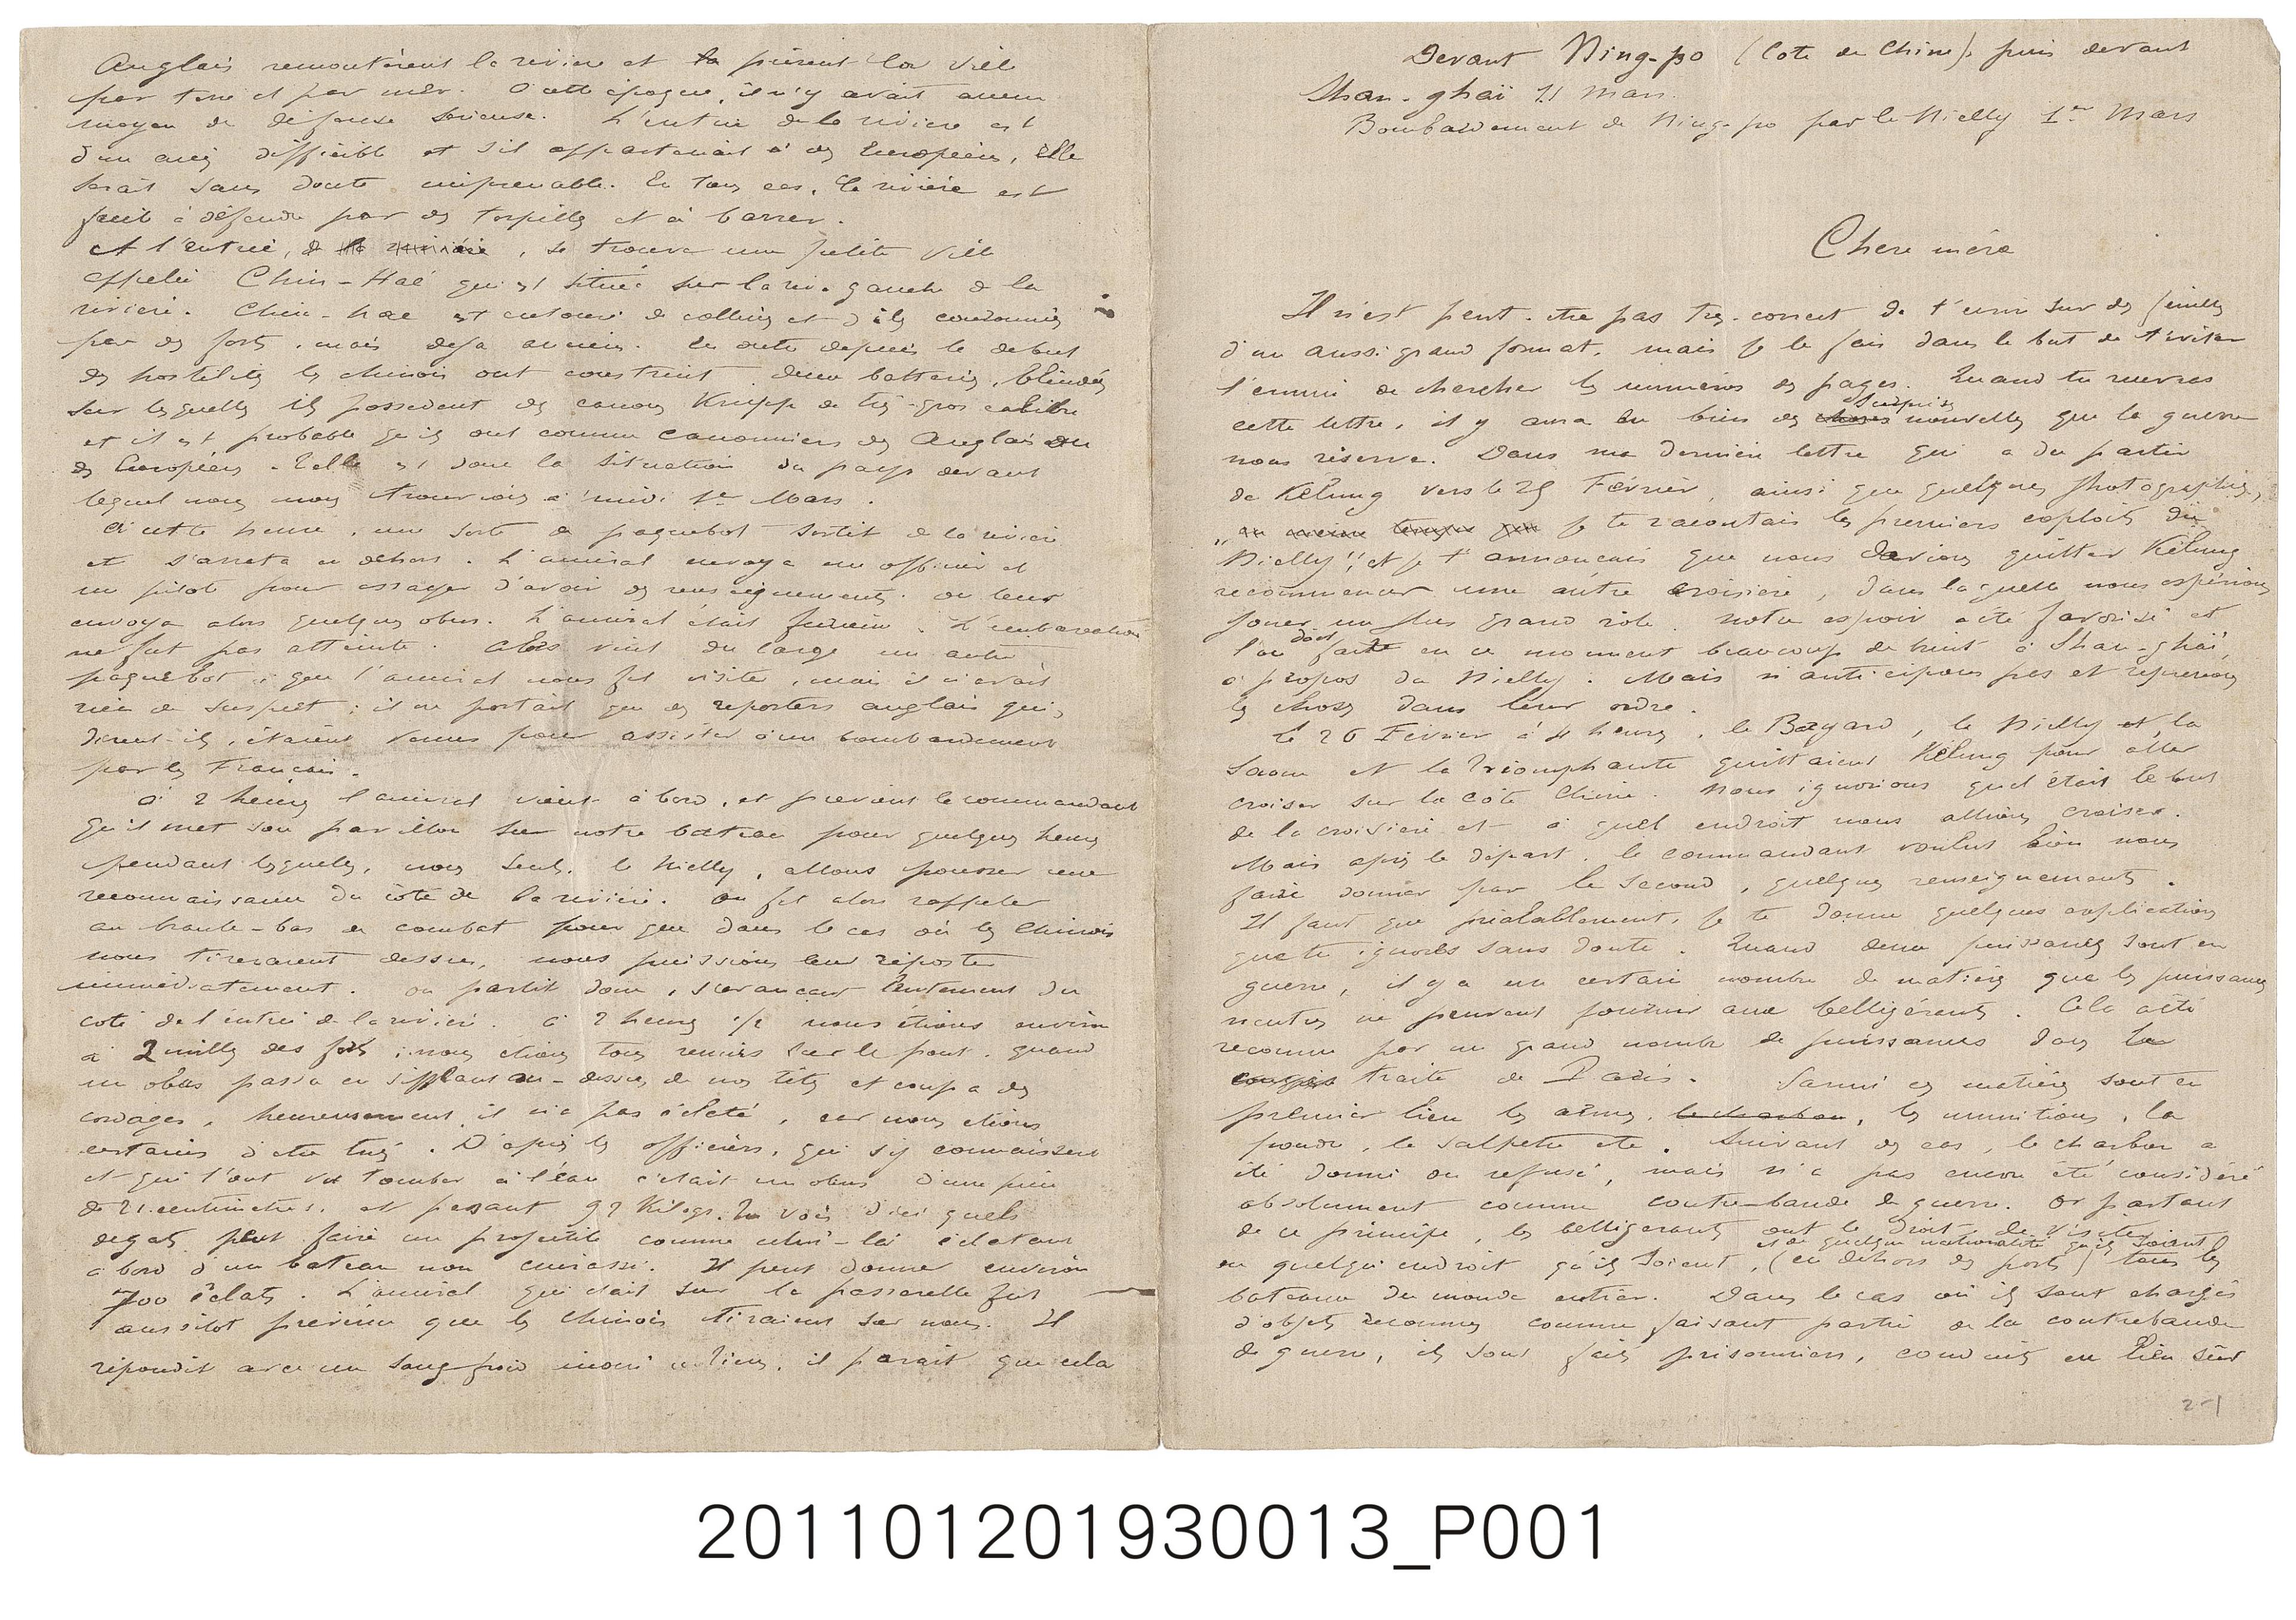 Devant Ning-po (Cote de Chine), puis devant
Shan-ghaï 11 Mars
Bombardement de Ning-po par le Nielly 1er Mars
Chere mère
Il n'est peut-etre pas tres-correct de t'ecrire sur des feuilles
d'un aussi grand format, mais je le fais dans le but de t'eviter
l'ennui de chercher les numeros des pages. Quand tu recevras
cette lettre, il y aura eu bien des choses surprises nouvelles que la guerre
nous réserve. Dans ma dernière lettre qui a du partir
de Kelung vers le 25 Février, ainsi que quelques photographies,
je te racontais les premiers exploits du
"Nielly" et je t'annonçais que nous devions quitter Kelung
recommencer une autre croisière, dans laquelle nous espérions
jouer un plus grand rôle. Notre espoir a été favorisé et
l'on doit faire en ce moment beaucoup de bruit à Shan-ghaï,
à propos du Nielly. Mais n'anticipons pas et reprenons
les choses dans leur ordre.
Le 26 Février à 4 heures, le Bayard, le Nielly et la
Saone et la Triomphante quittaient Kelung pour aller
croiser sur la Côte Chine. Nous ignorions quel était le but
de la croisière et à quel endroit nous allions croiser.
Mais après le départ, le commandant voulut bien nous
faire donner par le second, quelques renseignements.
Il faut que préalablement, je te donne quelques explications
que tu ignores sans doute. Quand deux puissances sont en
guerre, il y a un certain nombre de matières que les puissances
neutres ne peuvent fournir aux belligérents. Cela a été
reconnu par un grand nombre de puissances dans le
congrès traité de Paris. Parmi ces matières sont en
premier lieu les armes, le charbon, les munitions, la
poudre, le salpetre etc. Suivant les cas, le charbon a
été donné ou refusé, mais n'a pas encore été considéré
absolument comme contre-bande de guerre. Or partant
de ce principe, les belligerants ont le droit de visiter
et de quelque nationalité qu'ils soient
en quelqu'endroit qu'ils soient, (en dehors des ports) tous les
bateaux du monde entier. Dans le cas où ils sont chargés
d'objets reconnus comme faisant partie de la contrebande
de guerre, ils sont faits prisonniers, conduits en lieu sûr
2-1
Anglais remontèrent la rivière et la prirent la ville
par terre et par mer. A cette époque, il n'y avait aucun
moyen de défense serieuse. L'entrée de la rivière est
d'un accès difficile et s'il appartenait à des Européens, elle
serait sans doute imprenable. En tous cas, la rivière est
facile à défendre par des torpilles et à barrer.
A l'entrée, de la rivière, se trouve une petite ville
appelée Chin-Haé qui est située sur la rive gauche de la
rivière. Chin-hae est entouré de collines et d'îles couronnées
par des forts, mais deja anciens. En outre depuis le debut
des hostilités les chinois ont construit deux batteries, blindées
sur lesquelles ils possedent des canons Krupp de très-gros calibre
et il est probable qu'ils ont comme canonniers des Anglais ou
des Européens. Telle est donc la situation du pays devant
lequel nous nous trouvions à midi 1er Mars.
A cette heure, une sorte de paquebot sortit de la rivière
et s'arreta en dehors. L'amiral envoya un officier et
un pilote pour essayer d'avoir des renseignements. On leur
envoya alors quelques obus. L'amiral était furieux. L'embarcation
ne fut pas atteinte. Alors vint du large un autre
paquebot, que l'amiral nous fit visiter, mais il n'avait
rien de suspect; il ne portait que des reporters anglais qui,
dirent-ils, étaient venus pour assister à un bombardement
par les Français.
A 2 heures l'amiral vient à bord, et prévient le commandant
qu'il met son pavillon sur notre bateau pour quelques heures
pendant lesquelles, nous seuls, le Nielly, allons pousser une
reconnaissance du côté de la rivière. On fit alors rappeler
au branle-bas de combat pour que dans le cas où les Chinois
nous tireraient dessus, nous puissions leur riposter
immédiatement. On partit donc, s'avançant lentement du
coté de l'entrée de la rivière. A 2 heures 1/2 nous étions environ
à 2 milles des forts; nous étions tous reunis sur le pont, quand
un obus passa en sifflant au-dessus de nos têtes et coupa des
cordages, heureusement il n'a pas éclaté, car nous étions
certains d'etre tués. D'après les officiers, qui s'y connaissent
et qui l'ont vu tomber à l'eau c'était un obus d'une pièce
de 21 centimètres, et pesant 97 Kilogs. Tu vois d'ici quels
degats peut faire un projectile comme celui-là éclatant
à bord d'un bateau non cuirassé. Il peut donner environ
700 éclats. L'amiral qui était sur la passerelle fut
aussitot prévenu que les Chinois tiraient sur nous. Il
répondit avec un sang-froid inouï "Tiens, il parait que cela
201101201930013_P001